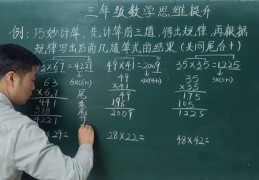 三年级数学思维提升
例:巧妙计算,先计算前三道,得出规律,再根据
规律写出后面几道算式的结果(头同尾合十)
3×67=4221 49×41=2009 35×35=1225
6×(6+1) 4×(4+1) 3×(3+1)
49
×41
49
196
2009
35
×35
175
105
1225
441
378
4221
尾
×29= 28×22= 48×42=